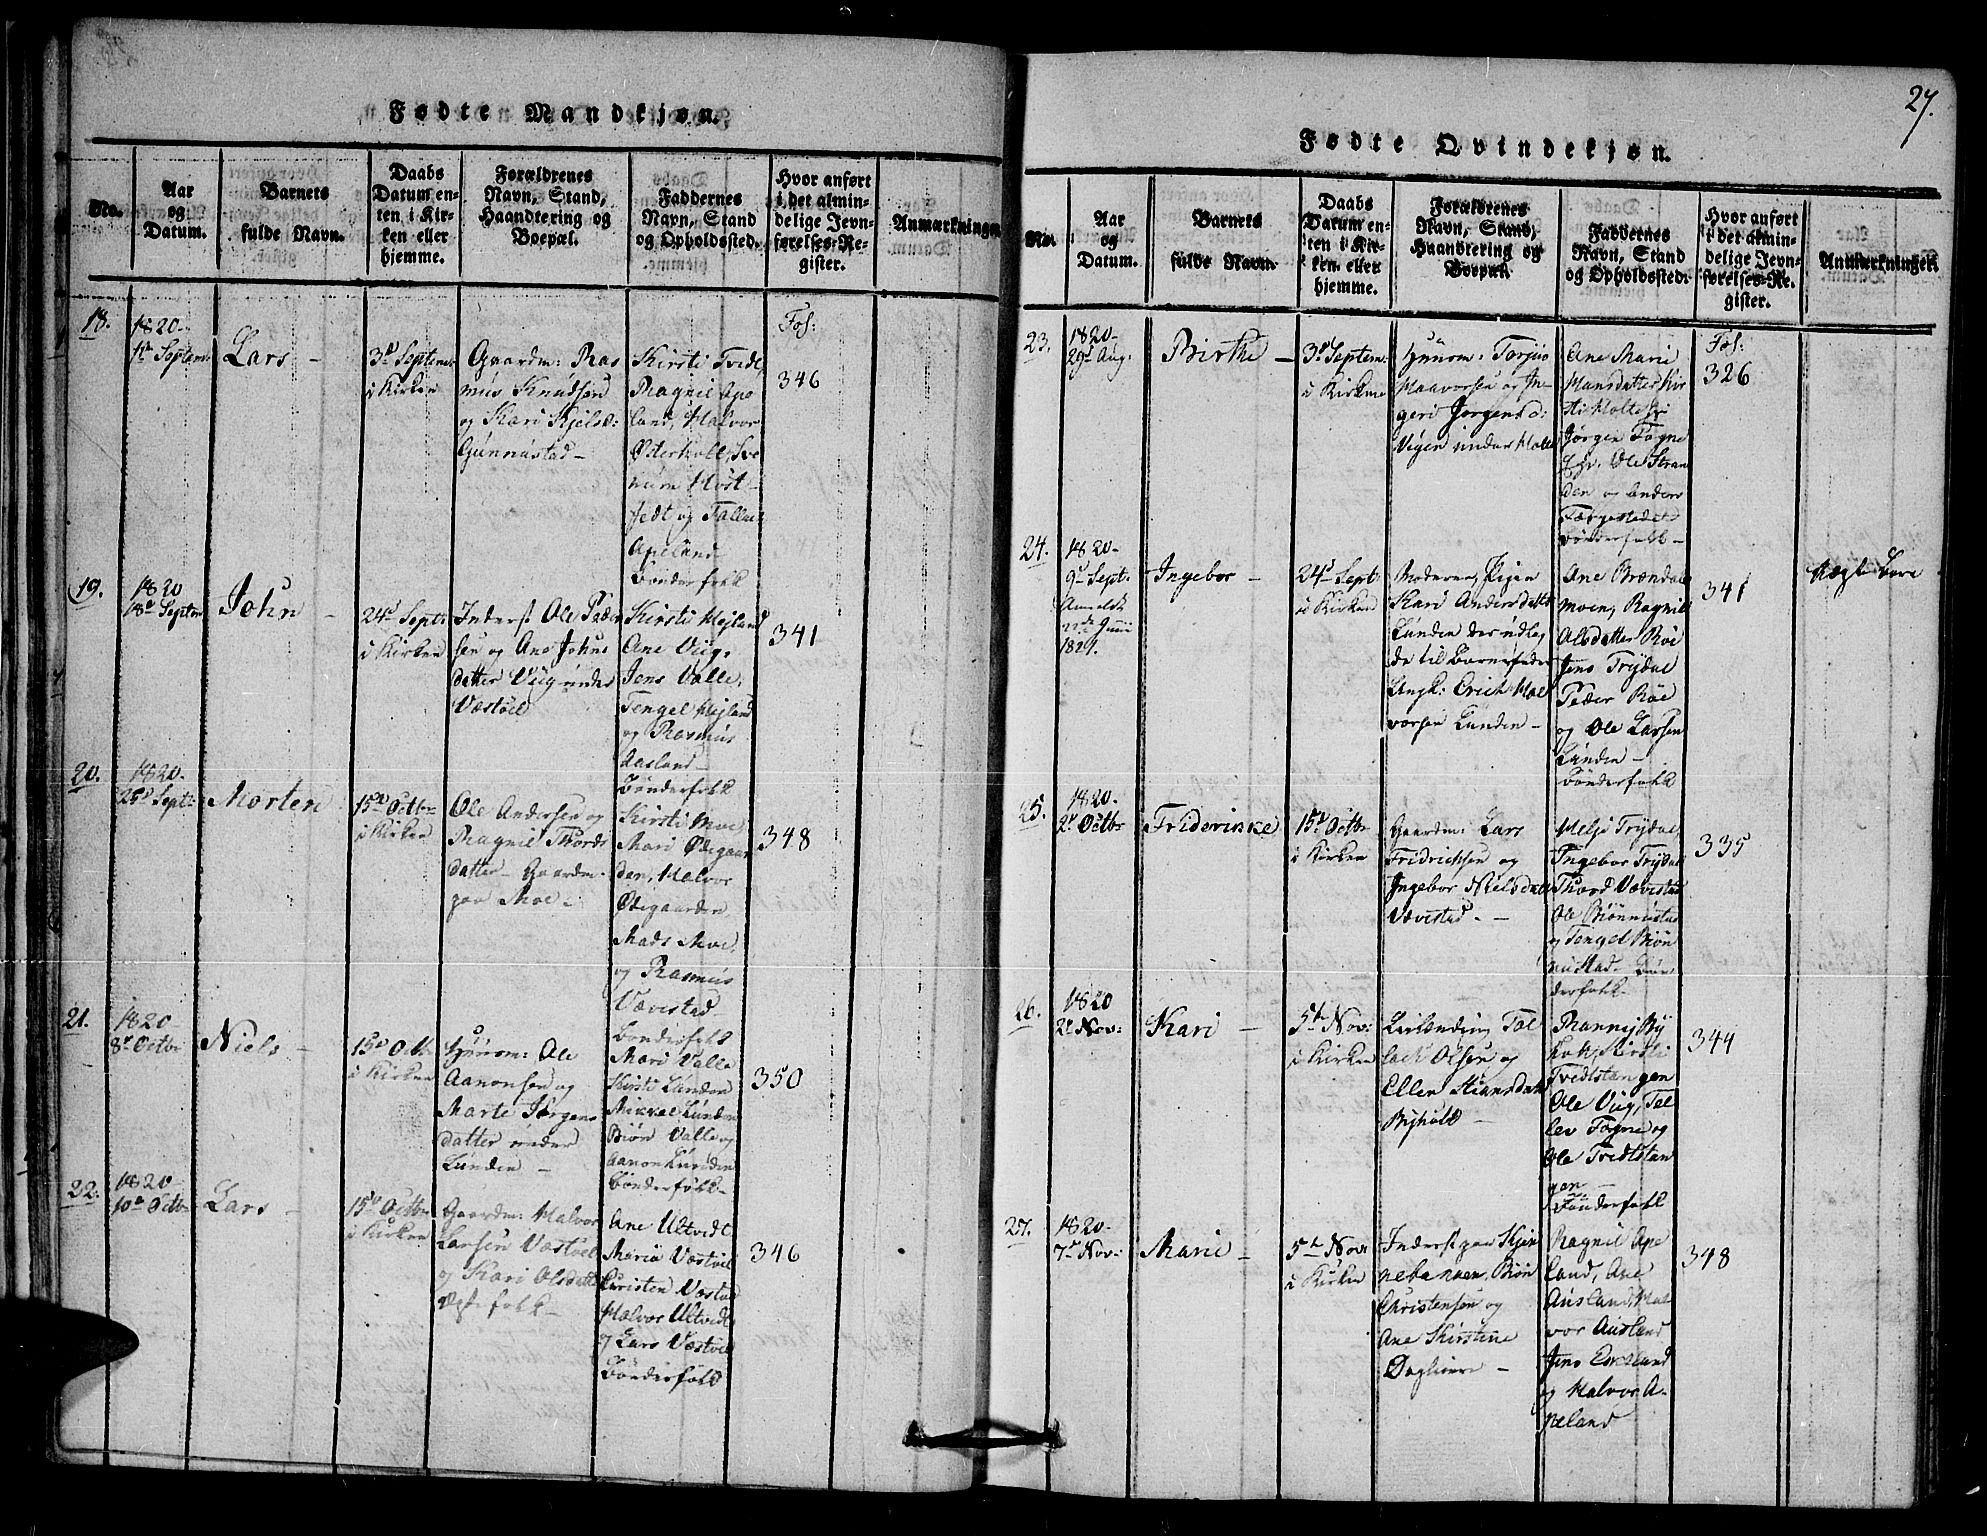 27.
Fødte Mandkjøn.
No.
Aar
og
Datum.
Barnets
fulde Navn.
Daabs
Datum en-
ten i Kir-
ken eller
hjemme.
Forældrenes
Navn, Stand,
Haandtering og
Boepæl.
Faddernes
Navn, Stand
og Opholdssted.
Hvor anført
i det almin-
delige Jevn-
førelses-Re-
gister.
Anmærkninger.
18.
1820
1te Septem:
Lars
3d Septem:
i Kirken
Gaardm: Ras
mus Knudsen
og Kari Kjelsd:
Gunnustad
Kirsti Tvidt,
Ragnil Ape
land, Halvor
Østerholt,
Apeland
Bønderfolk
Fol:
346
19.
1820
18d Septbr
John
24d Septr
i Kirken
Inderst Ole Peder
sen og Ane Johns
datter Viig under
Væstøel
Kirsti Mejland
Ane Viig,
Jens Valle,
Tengel Mejland
og Rasmus
Aasland
Bønderfolk
341
20.
1820
25d Septr
Morten
15d Octbr
i Kirken
Ole Andersen og
Ragnil Thords
datter Gaardm.
paa Moe
Kirsti Moe,
Mari Ødegaar
den, Halvor
Ødegaarden
Mads Moe,
og Rasmus
Vævestad
Bønderfolk
348
21.
1820
8d Octbr
Niels
15d Octbr
i Kirken
Huusm: Ole
Aanonsen og
Marte Jørgens
datter under
Lunden
Mari Valle
Kirsti Lunden
Mikkel Lunden
Biøn Valle og
Aanon Lunden
Bønderfolk
350
22.
1820
10d Octbr
Lars
15d Octbr
i Kirken
Gaardm: Halvor
Larsen Væstøel
og Kari Olsdatter
Ægtefolk
Ane Ultvedt
Maria Væstøel
Christen Væstøl
Halvor Ultvedt
og Lars Væstøel
Bønderfolk
346
Fødte Qvindekjøn.
No.
Aar
og
Datum.
Barnets
fulde Navn.
Daabs
Datum en-
ten i Kir-
ken eller
hjemme.
Forældrenes
Navn, Stand,
Haandtering og
Boepæl.
Faddernes
Navn, Stand
og Opholdssted.
Hvor anført
i det almin-
delige Jevn-
førelses-Re-
gister.
Anmærkninger.
23.
1820
29d Aug:
Birthe
3d Septem:
i Kirken
Huusm: Torjus
Haavorsen og In-
geri Jørgensd:
Vigen under Holte
Ane Marie
Hansdatter Kir
sti Holte
Jørgen Fogne
Ole Stran
den og Anders
Færgestedet
Bønderfolk
Fol:
326
24.
1820
9d Septr.
Anmeldt
Junii
1821.
Ingebor
24d Septr
i Kirken
Moderen, Pigen
Kari Andersdatter
Lunden der udlag
de til Barnefader
Ungk: Erich Hal
vorsen Lunden
Ane Brændal
moen, Ragnil
Alsdatter Røe
Jens Trydal
Peder Røe
og Ole Larsen
Lunden
Bønderfolk
341
Uægte
25.
1820
2d Octbr
Friderikke
15d Octbr
i Kirken
Gaardm: Lars
Fridrichsen og
Ingebor Nielsdatter
Vævestad
Helje Trydal,
Ingebor Trydal
Thord Vævestad
Ole Biønnustad
og Tengel Biøn
nustad Bøn
derfolk
335
26.
1820
2d Nov:
Kari
5te Nov:
i Kirken
Leilænding Tal
lack Olsen og
Ellen Steansdatter
Byholt
Ranney By
holt, Kirsti
Tvedtstangen
Ole Viig, Tal
lev Fogne og
Ole Tvedtstan
gen
Bønderfolk
344
27.
1820
7d Nov:
Marie
5te Nov:
i Kirken
Inderst paa Skjer
Biøn
Christensen og
Ane Kirstine
Ragnil Ape
land, Ane
Ausland, Hal
vor Ausland
Jens Eskeland
og Halvor A
peland
348